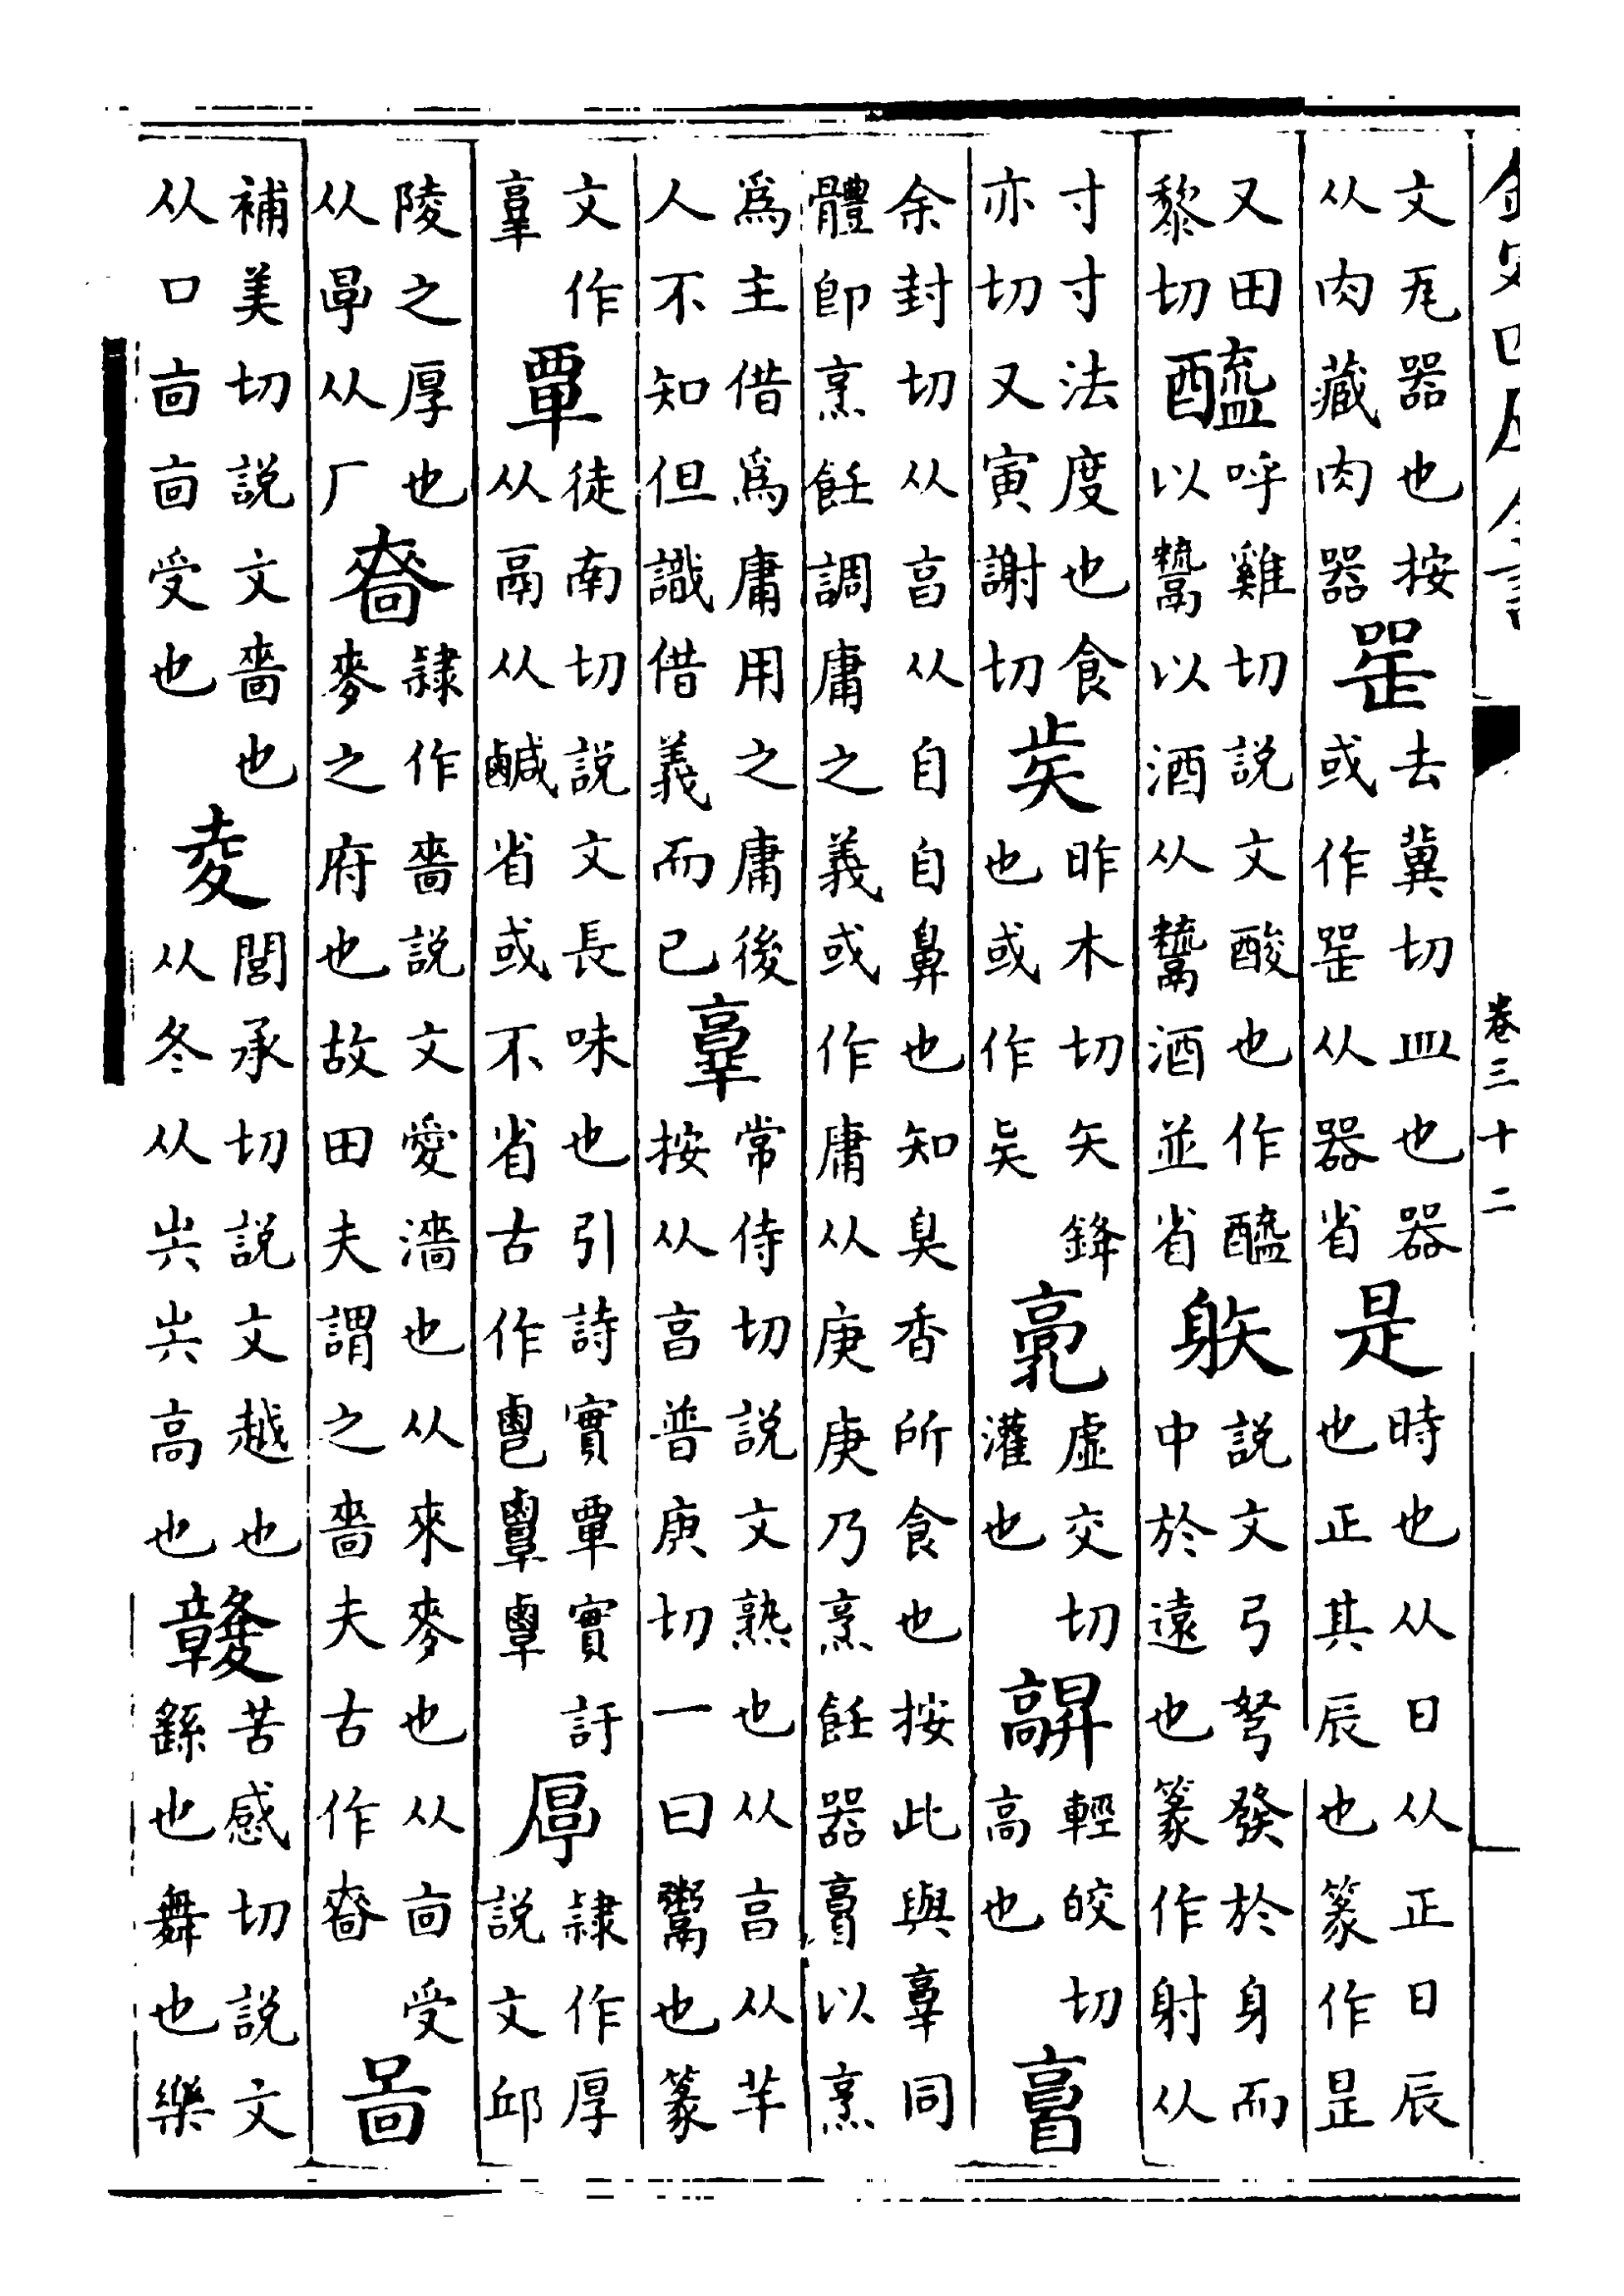 卷三十二
文㼚器也按
从肉藏肉器
去冀切皿也器
或作从器省
是
時也从日从正日辰
也正其辰也篆作昰
又田
黎切
醯
呼雞切說文酸也作醯
以鬻以酒从鬻酒並省
躲
說文弓弩發於身而
中於遠也篆作射从
寸寸法度也食
亦切又寅謝切
昨木切矢鋒
也或作
虛交切
灌也
輕皎切
高也
𦤘
余封切从亯从自自鼻也知臭香所食也按此與𦎫同
體卽烹飪調庸之義或作庸从庚庚乃烹飪器𦤘以烹
爲主借爲庸用之庸後
人不知但識借義而已
𦎫
常侍切說文熟也从亯从羊
按从亯普庚切一曰鬻也篆
文作
𦎫
覃
徒南切說文長味也引詩實覃實訏
从鬲从鹹省或不省古作
厚
隸作厚
說文邱
陵之厚也
从㫗从厂
嗇
隸作嗇說文愛濇也从來麥也从㐭受
麥之府也故田夫謂之嗇夫古作嗇
啚
補美切說文嗇也
从口㐭㐭受也
夌
閭承切說文越也
从冬从𡴆𡴆高也
苦感切說文
繇也舞也樂